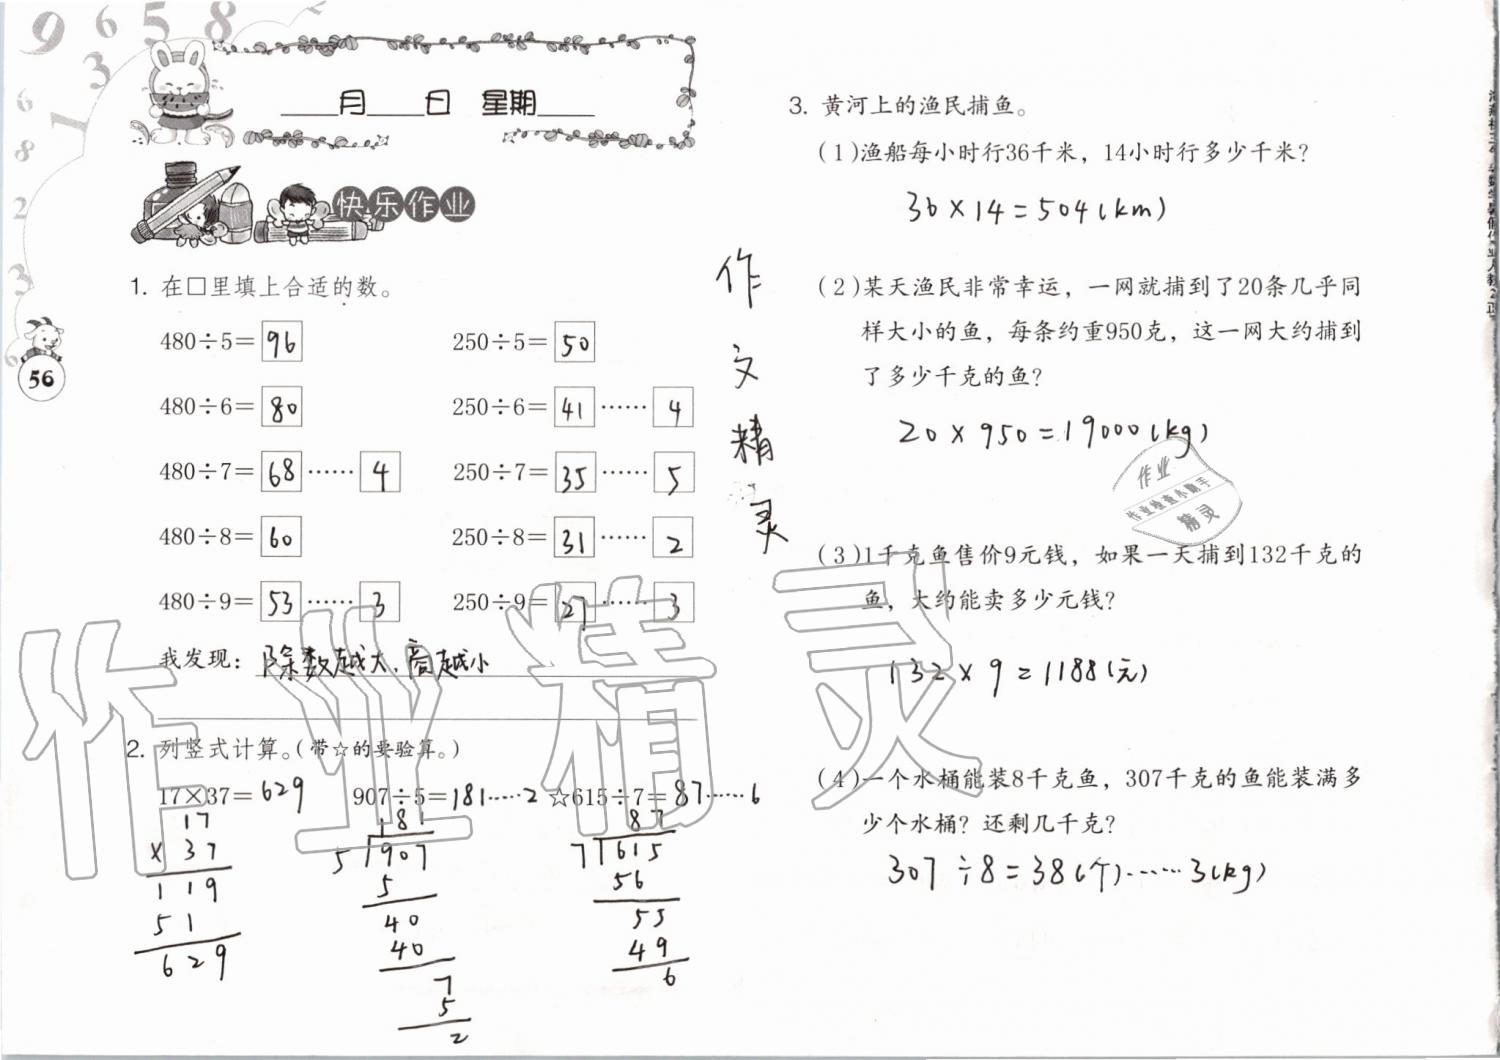 ____月____日 星期____
快乐作业
56
1. 在□里填上合适的数。
480÷5=96 250÷5=50
480÷6=80 250÷6=41……4
480÷7=68……4 250÷7=35……5
480÷8=60 250÷8=31……2
480÷9=53……3 250÷9=27……3
我发现：除数越大、商越小
2. 列竖式计算。(带☆的要验算。)
17×37=629 907÷5=181……2 ☆615÷7=87……6
17
× 37
119
51
629
181
5 907
5
40
40
7
5
2
87
7 615
56
55
49
6
作文精灵
3. 黄河上的渔民捕鱼。
(1)渔船每小时行36千米，14小时行多少千米?
36×14=504(km)
(2)某天渔民非常幸运，一网就捕到了20条几乎同
样大小的鱼，每条约重950克，这一网大约捕到
了多少千克的鱼?
20×950=19000(kg)
作业
作业检查小助手
精灵
(3)1千克鱼售价9元钱，如果一天捕到132千克的
鱼，大约能卖多少元钱?
132×9=1188(元)
(4)一个水桶能装8千克鱼，307千克的鱼能装满多
少个水桶? 还剩几千克?
307÷8=38(个)……3(kg)
作业精灵